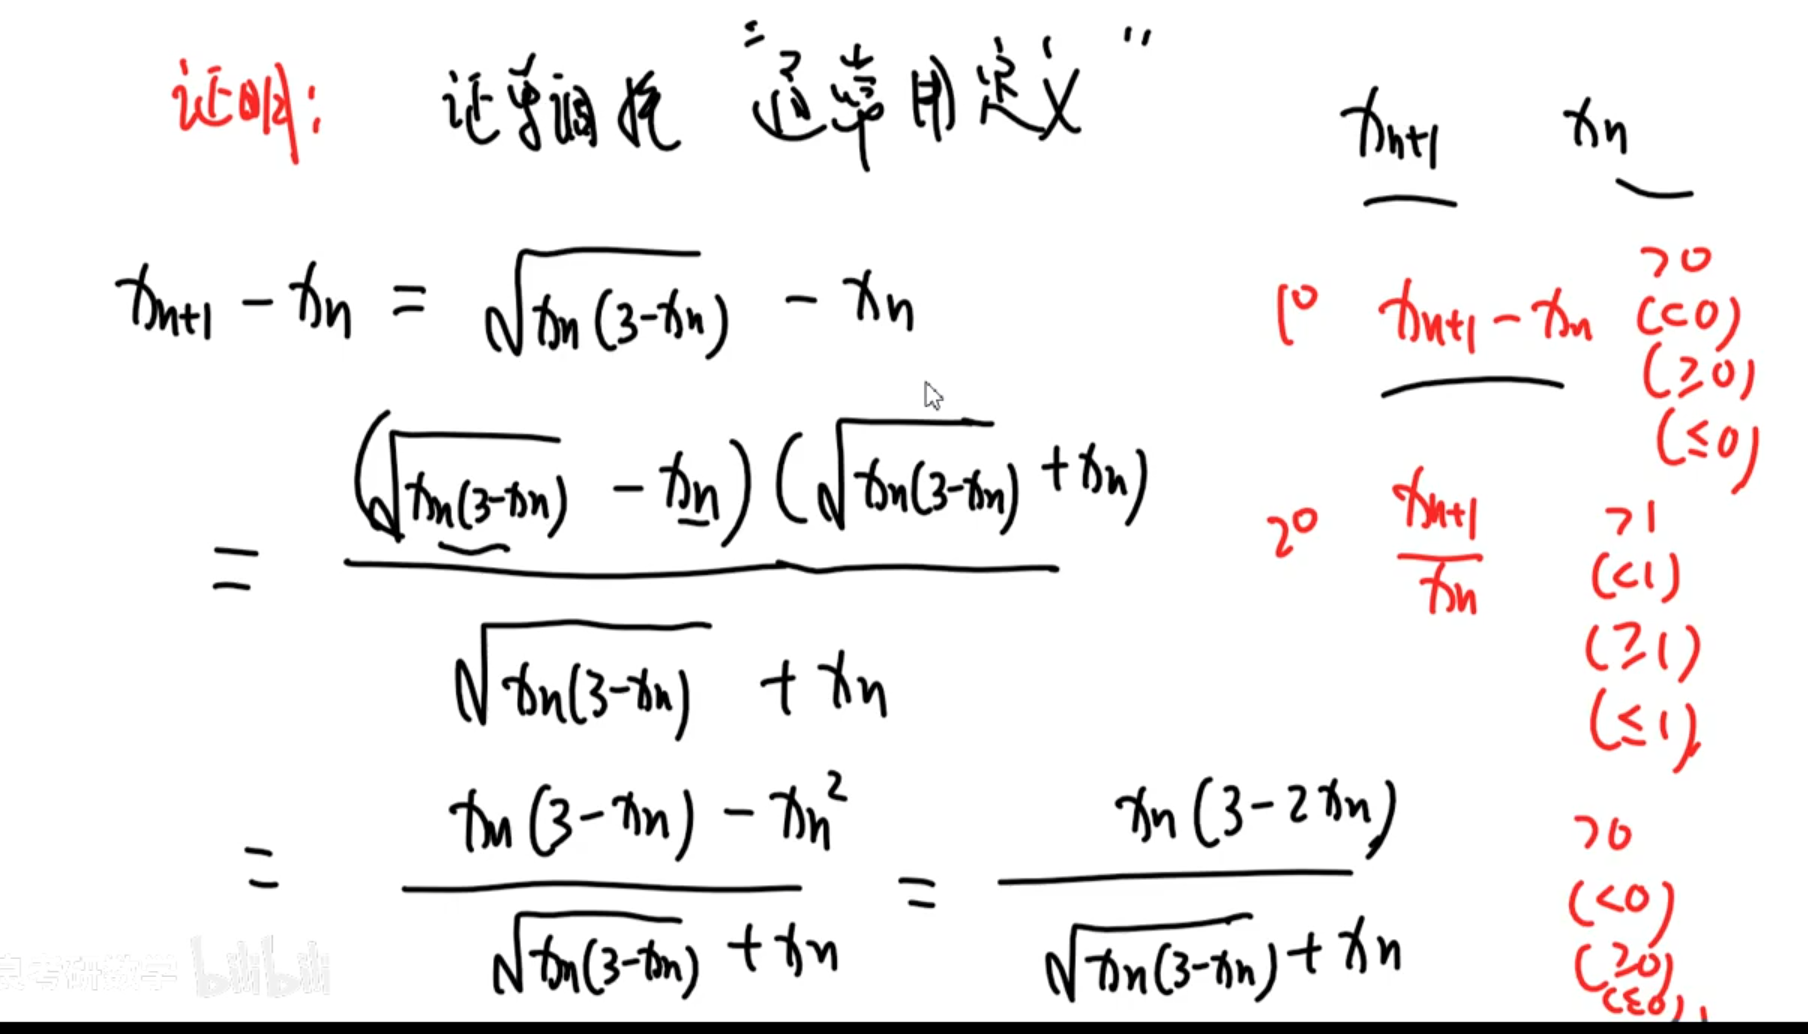 证明：
证单调性 "通常用定义"
xₙ₊₁ xₙ
xₙ₊₁ - xₙ = √(xₙ(3-xₙ)) - xₙ
= (√(xₙ(3-xₙ)) - xₙ)(√(xₙ(3-xₙ)) + xₙ) / (√(xₙ(3-xₙ)) + xₙ)
= (xₙ(3-xₙ) - xₙ²) / (√(xₙ(3-xₙ)) + xₙ) = xₙ(3-2xₙ) / (√(xₙ(3-xₙ)) + xₙ)
1° xₙ₊₁ - xₙ >0
(<0)
(≥0)
(≤0)
2° xₙ₊₁ / xₙ >1
(<1)
(≥1)
(≤1)
>0
(<0)
(≥0)
(≤0)
考研数学 bilibili